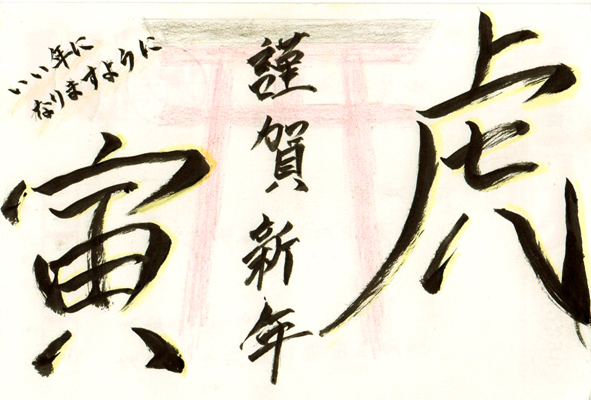 虎
謹賀新年
いい年に
なりますように
寅